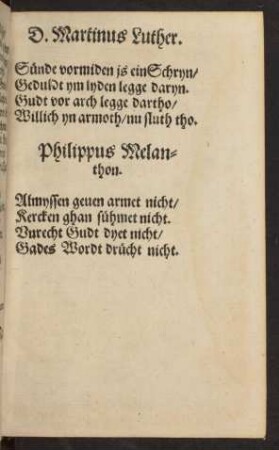 D. Martinus Luther.
Sünde vormiden js ein Schryn/
Geduldt ym lyden legge daryn.
Gudt vor arch legge dartho/
Willich yn armoth/ nu sluth tho.
Philippus Melan-
thon.
Almyssen geuen armet nicht/
Kercken ghan sühmet nicht.
Vnrecht Gudt dyet nicht/
Gades Wordt drücht nicht.